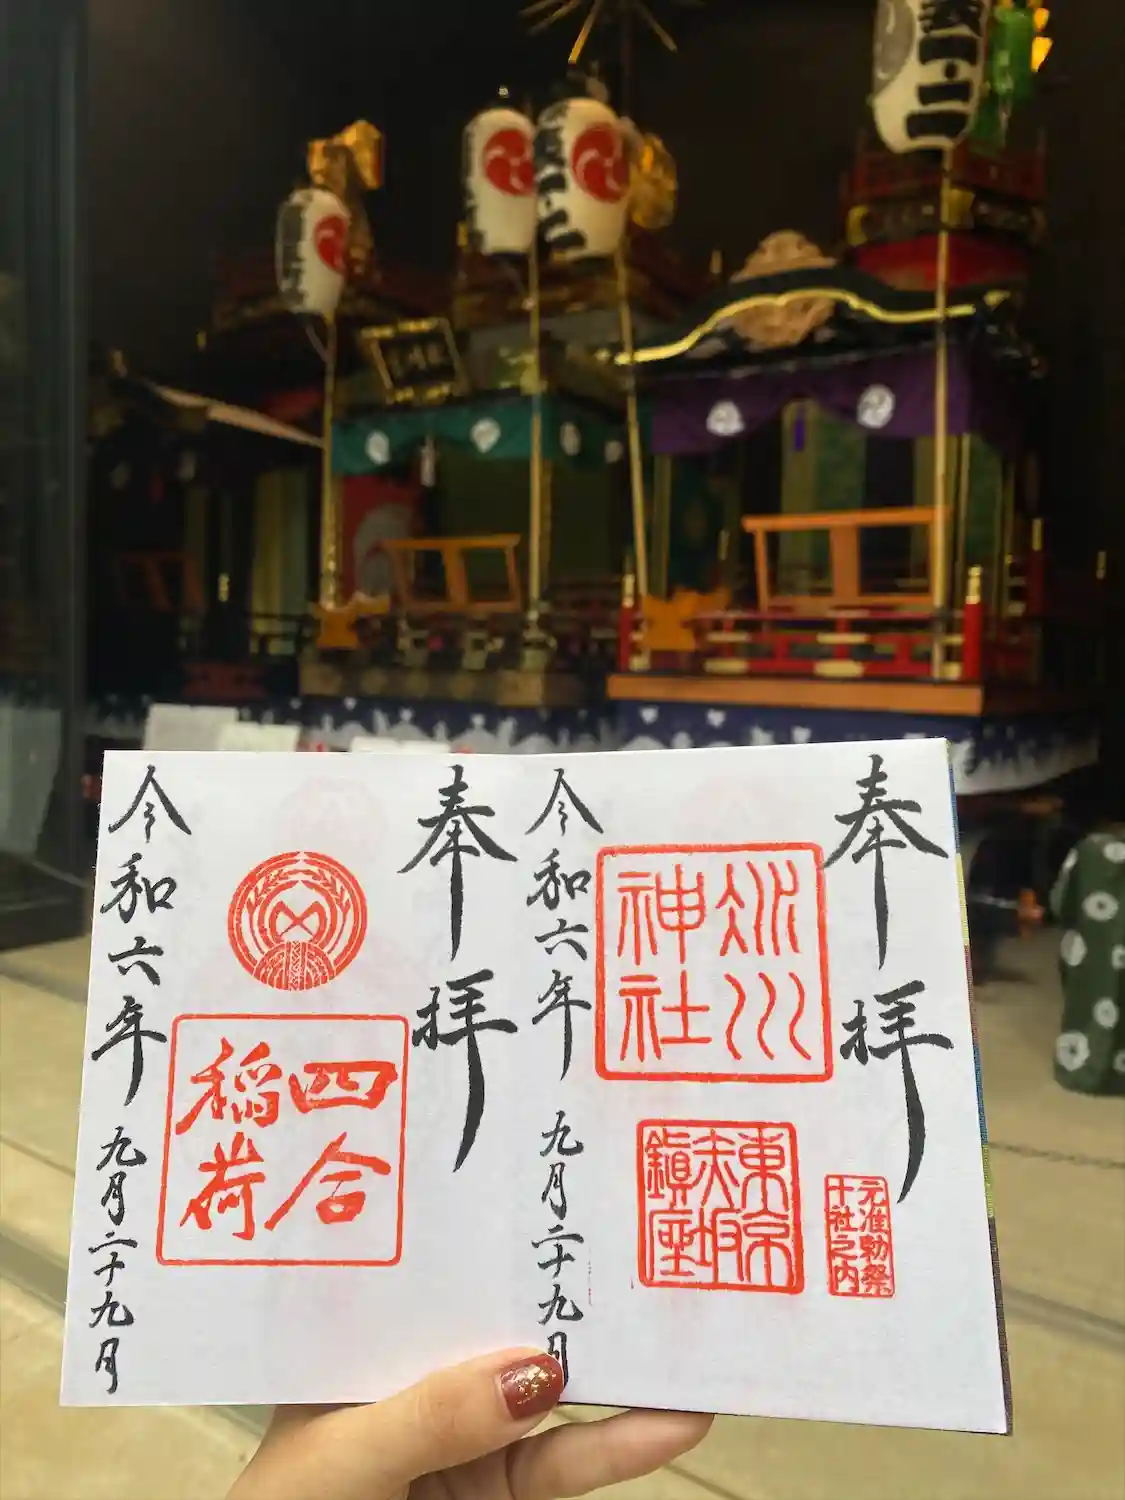 奉拝
元准勅祭
十社之内
氷川
神社
東京
赤坂
鎮座
令和六年 九月二十九日
奉拝
四合
稲荷
令和六年 九月二十九日